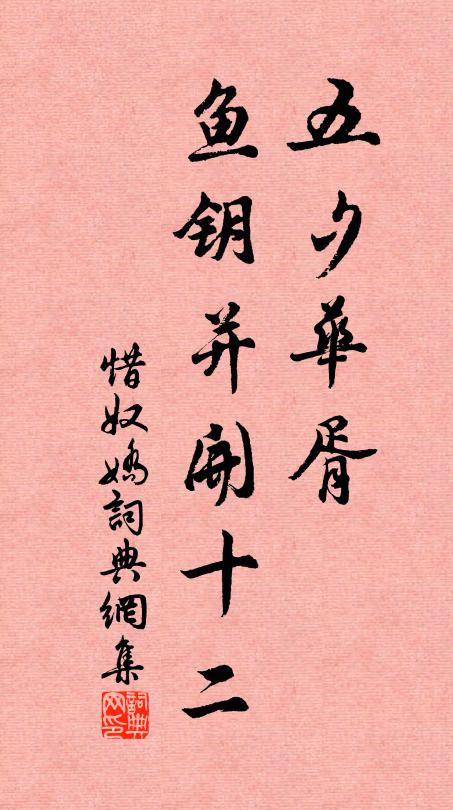 五夕華胥
鱼钥并開十二
惜奴嬌詞典網集
詞典网印